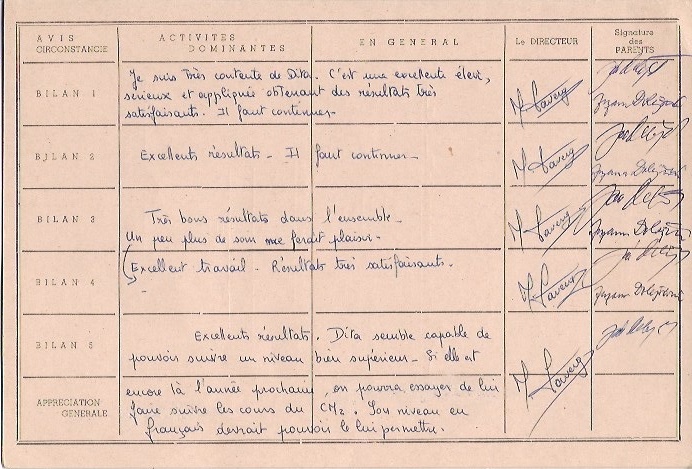 AVIS CIRCONSTANCIE
ACTIVITES DOMINANTES
EN GENERAL
Le DIRECTEUR
Signature des PARENTS
BILAN 1
Je suis très contente de Dita. C'est une excellente élève,
sérieuse et appliquée obtenant des résultats très
satisfaisants. Il faut continuer.
BILAN 2
Excellents résultats. Il faut continuer.
BILAN 3
Très bons résultats dans l'ensemble.
Un peu plus de soin me ferait plaisir.
BILAN 4
Excellent travail. Résultats très satisfaisants.
BILAN 5
Excellents résultats. Dita semble capable de
pouvoir suivre un niveau bien supérieur. Si elle est
APPRECIATION GENERALE
encore là l'année prochaine, on pourra essayer de lui
faire suivre les cours du CM2. Son niveau en
français devrait pouvoir le lui permettre.